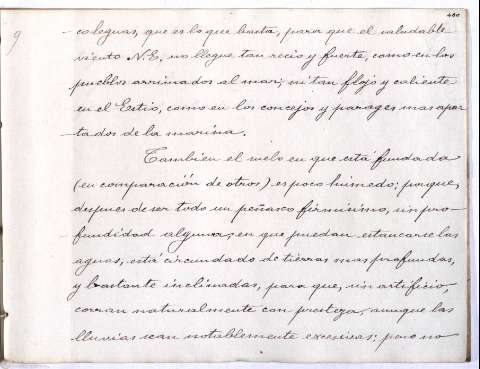 460
9
co leguas, que es lo que basta, para que el saludable
viento N.E. no llegue tan recio y fuerte, como en los
pueblos arrimados al mar; ni tan flojo y caliente
en el Estío, como en los concejos y parages mas apar-
tados de la marina.
Tambien el suelo en que está fundada
(en comparación de otros) es poco humedo; porque,
despues de ser todo un peñasco firmisimo, sin pro-
fundidad alguna, en que puedan estancarse las
aguas, está circundado de tierras mas profundas,
y bastante inclinadas, para que, sin artificio,
corran naturalmente con presteza, aunque las
lluvias sean notablemente excesivas; pero no